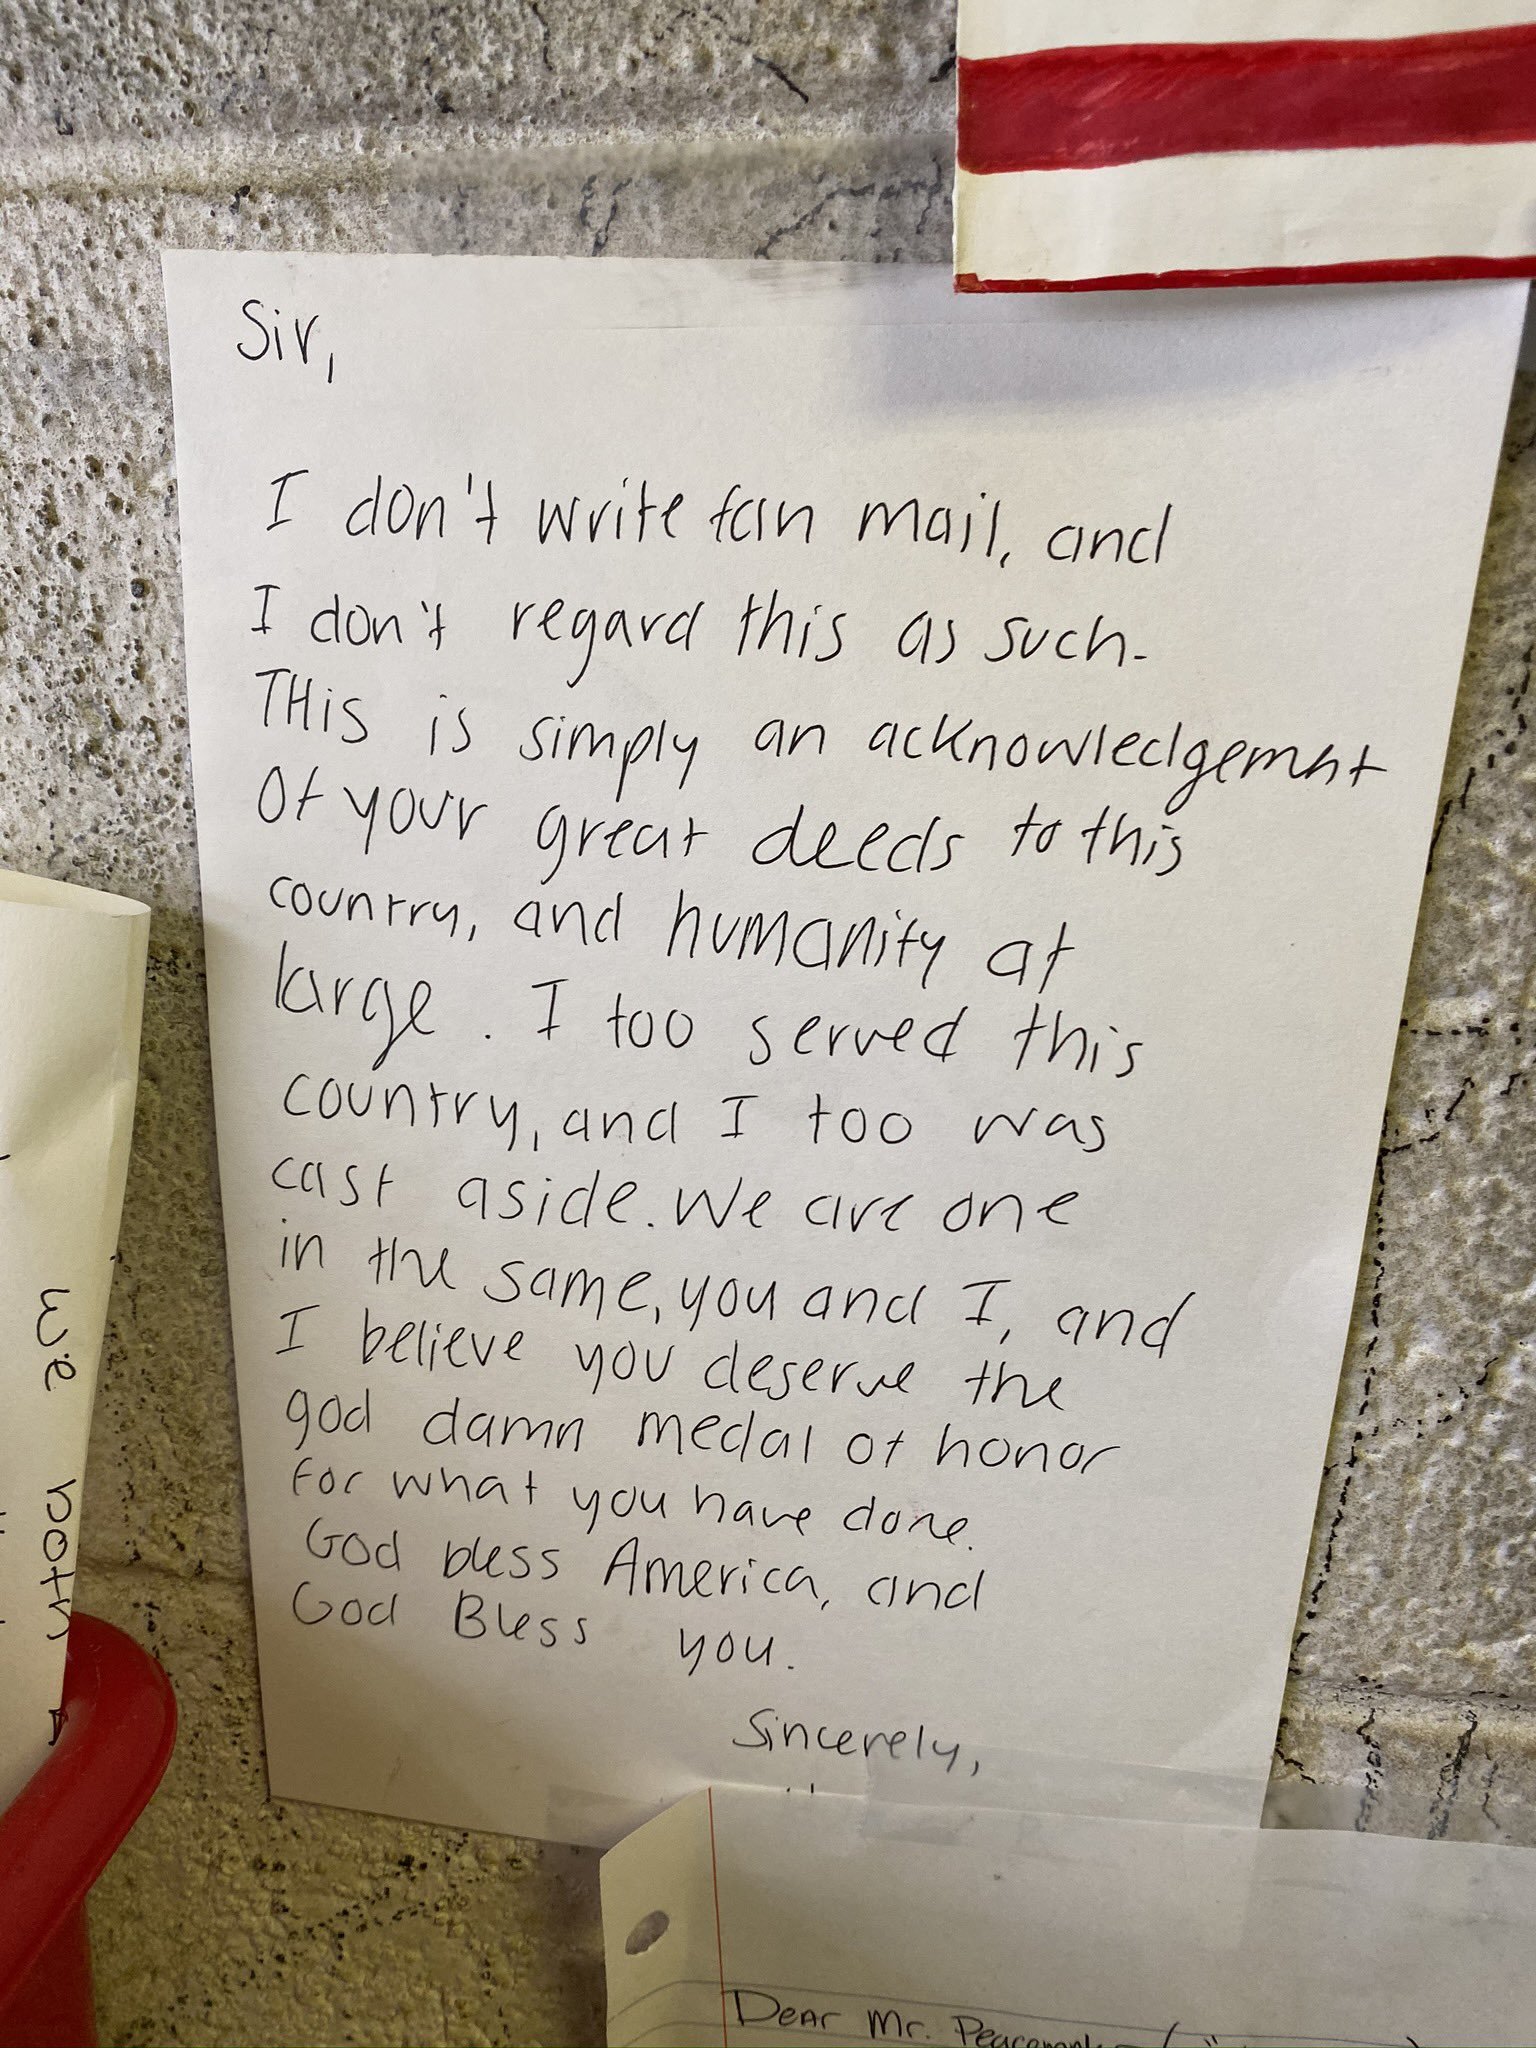 Sir,
I don't write fan mail, and
I don't regard this as such.
THis is simply an acknowledgemnt
Of your great deeds to this
country, and humanity at
large. I too served this
country, and I too was
cast aside. We are one
in the same, you and I, and
I believe you deserve the
god damn medal of honor
For what you have done.
God bless America, and
God Bless you.
Sincerely,
we both
Dear Mr.